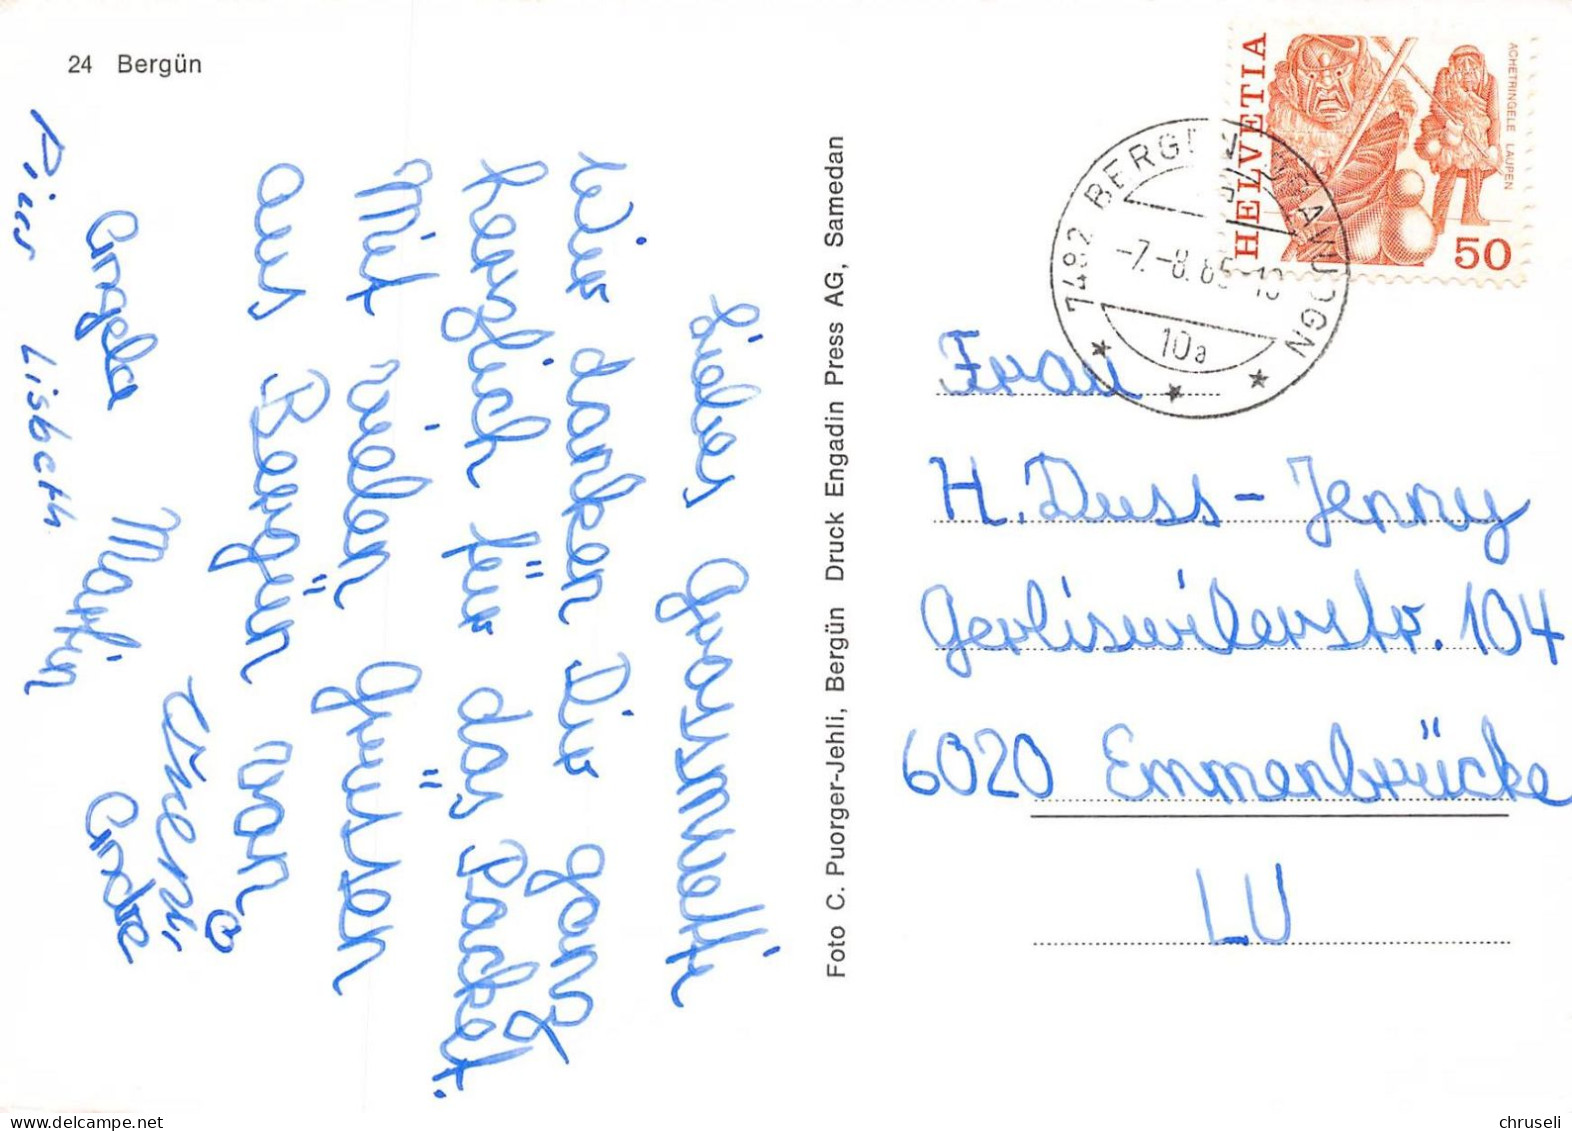 24 Bergün
Liebes Grossmutti
Wir danken Dir ganz
herzlich für das Päcket.
Mit vielen Grüssen
aus Bergün von
Angela Martin Andre
Pius Lisbeth
Foto C. Puorger-Jehli, Bergün Druck Engadin Press AG, Samedan
HELVETIA
ACHETRINGELE LAUPEN
50
7482 BERGÜN
-7.-8.85-18
10a
Frau
H. Duss-Jenny
Gerliswilerstr. 104
6020 Emmenbrücke
LU
chruseli